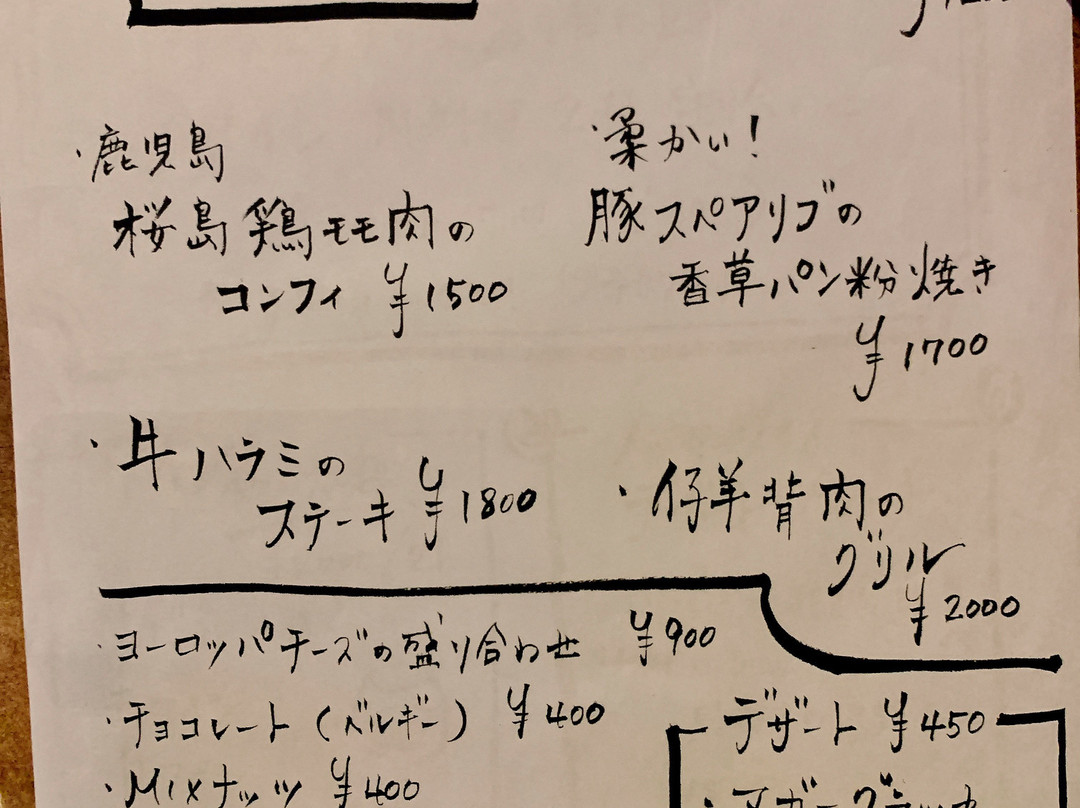 ・鹿児島
桜島鶏モモ肉の
コンフィ ¥1500
・柔かい!
豚スペアリブの
香草パン粉焼き
¥1700
・牛ハラミの
ステーキ ¥1800
・仔羊背肉の
グリル
¥2000
・ヨーロッパチーズの盛り合わせ ¥900
・チョコレート(ベルギー) ¥400
・Mixナッツ ¥400
デザート ¥450